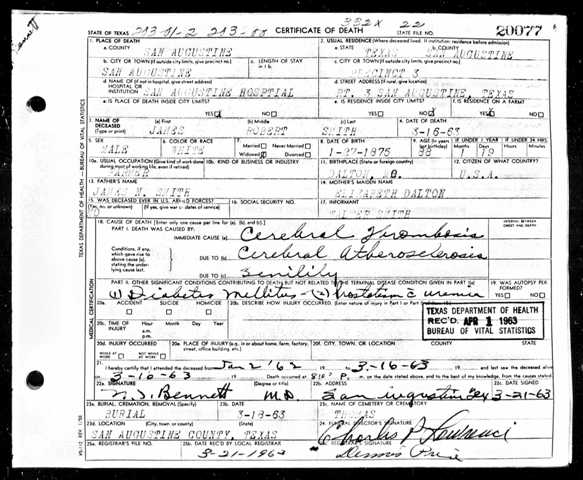 332X 22
STATE OF TEXAS CERTIFICATE OF DEATH STATE FILE NO. 20077
1. PLACE OF DEATH 2. USUAL RESIDENCE (Where deceased lived. If institution: residence before admission)
a. COUNTY SAN AUGUSTINE a. STATE TEXAS b. COUNTY SAN AUGUSTINE
b. CITY OR TOWN (If outside city limits, give precinct no.) c. LENGTH OF STAY in 1 b. c. CITY OR TOWN (If outside city limits, give precinct no.)
SAN AUGUSTINE PRECINCT 3
d. NAME OF (If not in hospital, give street address) HOSPITAL OR INSTITUTION d. STREET ADDRESS (If rural, give location)
SAN AUGUSTINE HOSPTIAL RT. 3 SAN AUGUSTINE, TEXAS
e. IS PLACE OF DEATH INSIDE CITY LIMITS? YES NO e. IS RESIDENCE INSIDE CITY LIMITS? YES NO f. IS RESIDENCE ON A FARM? YES NO
3. NAME OF DECEASED (Type or print) (a) First (b) Middle (c) Last 4. DATE OF DEATH
JAMES ROBERT SMITH 3-16-63
5. SEX 6. COLOR OR RACE 7. Married Never Married Widowed Divorced 8. DATE OF BIRTH 9. AGE (In years last birthday) IF UNDER 1 YEAR IF UNDER 24 HRS.
MALE WHITE 88 1 19
10a. USUAL OCCUPATION (Give kind of work done during most of working life, even if retired) 10b. KIND OF BUSINESS OR INDUSTRY 11. BIRTHPLACE (State or foreign country) 12. CITIZEN OF WHAT COUNTRY?
FARMER DALTON, U.S.A.
13. FATHER'S NAME 14. MOTHER'S MAIDEN NAME
JAMES N. SMITH ELIZABETH DALTON
15. WAS DECEASED EVER IN U.S. ARMED FORCES? 16. SOCIAL SECURITY NO. 17. INFORMANT
(Yes, no, or unknown) (If yes, give war or dates of service) SMITH
18. CAUSE OF DEATH [Enter only one cause per line for (a), (b), and (c).] INTERVAL BETWEEN ONSET AND DEATH
PART I. DEATH WAS CAUSED BY:
IMMEDIATE CAUSE (a) Cerebral Thrombosis
Conditions, if any, which gave rise to above cause (a), stating the underlying cause last. DUE TO (b) Cerebral Atherosclerosis
DUE TO (c) Senility
PART II. OTHER SIGNIFICANT CONDITIONS CONTRIBUTING TO DEATH BUT NOT RELATED TO THE TERMINAL DISEASE CONDITION GIVEN IN PART I (a) 19. WAS AUTOPSY PERFORMED?
(1) Diabetes Mellitus (2) Prostatism c̄ uremia YES NO
20a. ACCIDENT SUICIDE HOMICIDE 20b. DESCRIBE HOW INJURY OCCURRED. (Enter nature of injury in Part I or Part II)
20c. TIME OF INJURY Hour Month Day Year a.m. p.m.
TEXAS DEPARTMENT OF HEALTH
REC'D. APR 1 1963
BUREAU OF VITAL STATISTICS
20d. INJURY OCCURRED WHILE AT WORK NOT WHILE AT WORK 20e. PLACE OF INJURY (e.g. in or about home, farm, factory, street, office building, etc.) 20f. CITY, TOWN, OR LOCATION COUNTY STATE
21. I hereby certify that I attended the deceased from Jan 2 '62 to 3-16-63 and last saw the deceased alive
3-16-63 Death occurred at P.m. on the date stated above, and to the best of my knowledge, from the causes stated.
22a. SIGNATURE (Degree or title) 22b. ADDRESS 22c. DATE SIGNED
Bennett M.D. San Augustine Tex 3-21-63
23a. BURIAL, CREMATION, REMOVAL (Specify) 23b. DATE 23c. NAME OF CEMETERY OR CREMATORY
BURIAL 3-18-63 THOMAS
23d. LOCATION (City, town, or county) (State) 24. FUNERAL DIRECTOR'S SIGNATURE
SAN AUGUSTINE COUNTY, TEXAS Charles
25a. REGISTRAR'S FILE NO. 25b. DATE REC'D BY LOCAL REGISTRAR 25c. REGISTRAR'S SIGNATURE
3-21-1963
TEXAS DEPARTMENT OF HEALTH — BUREAU OF VITAL STATISTICS
MEDICAL CERTIFICATION